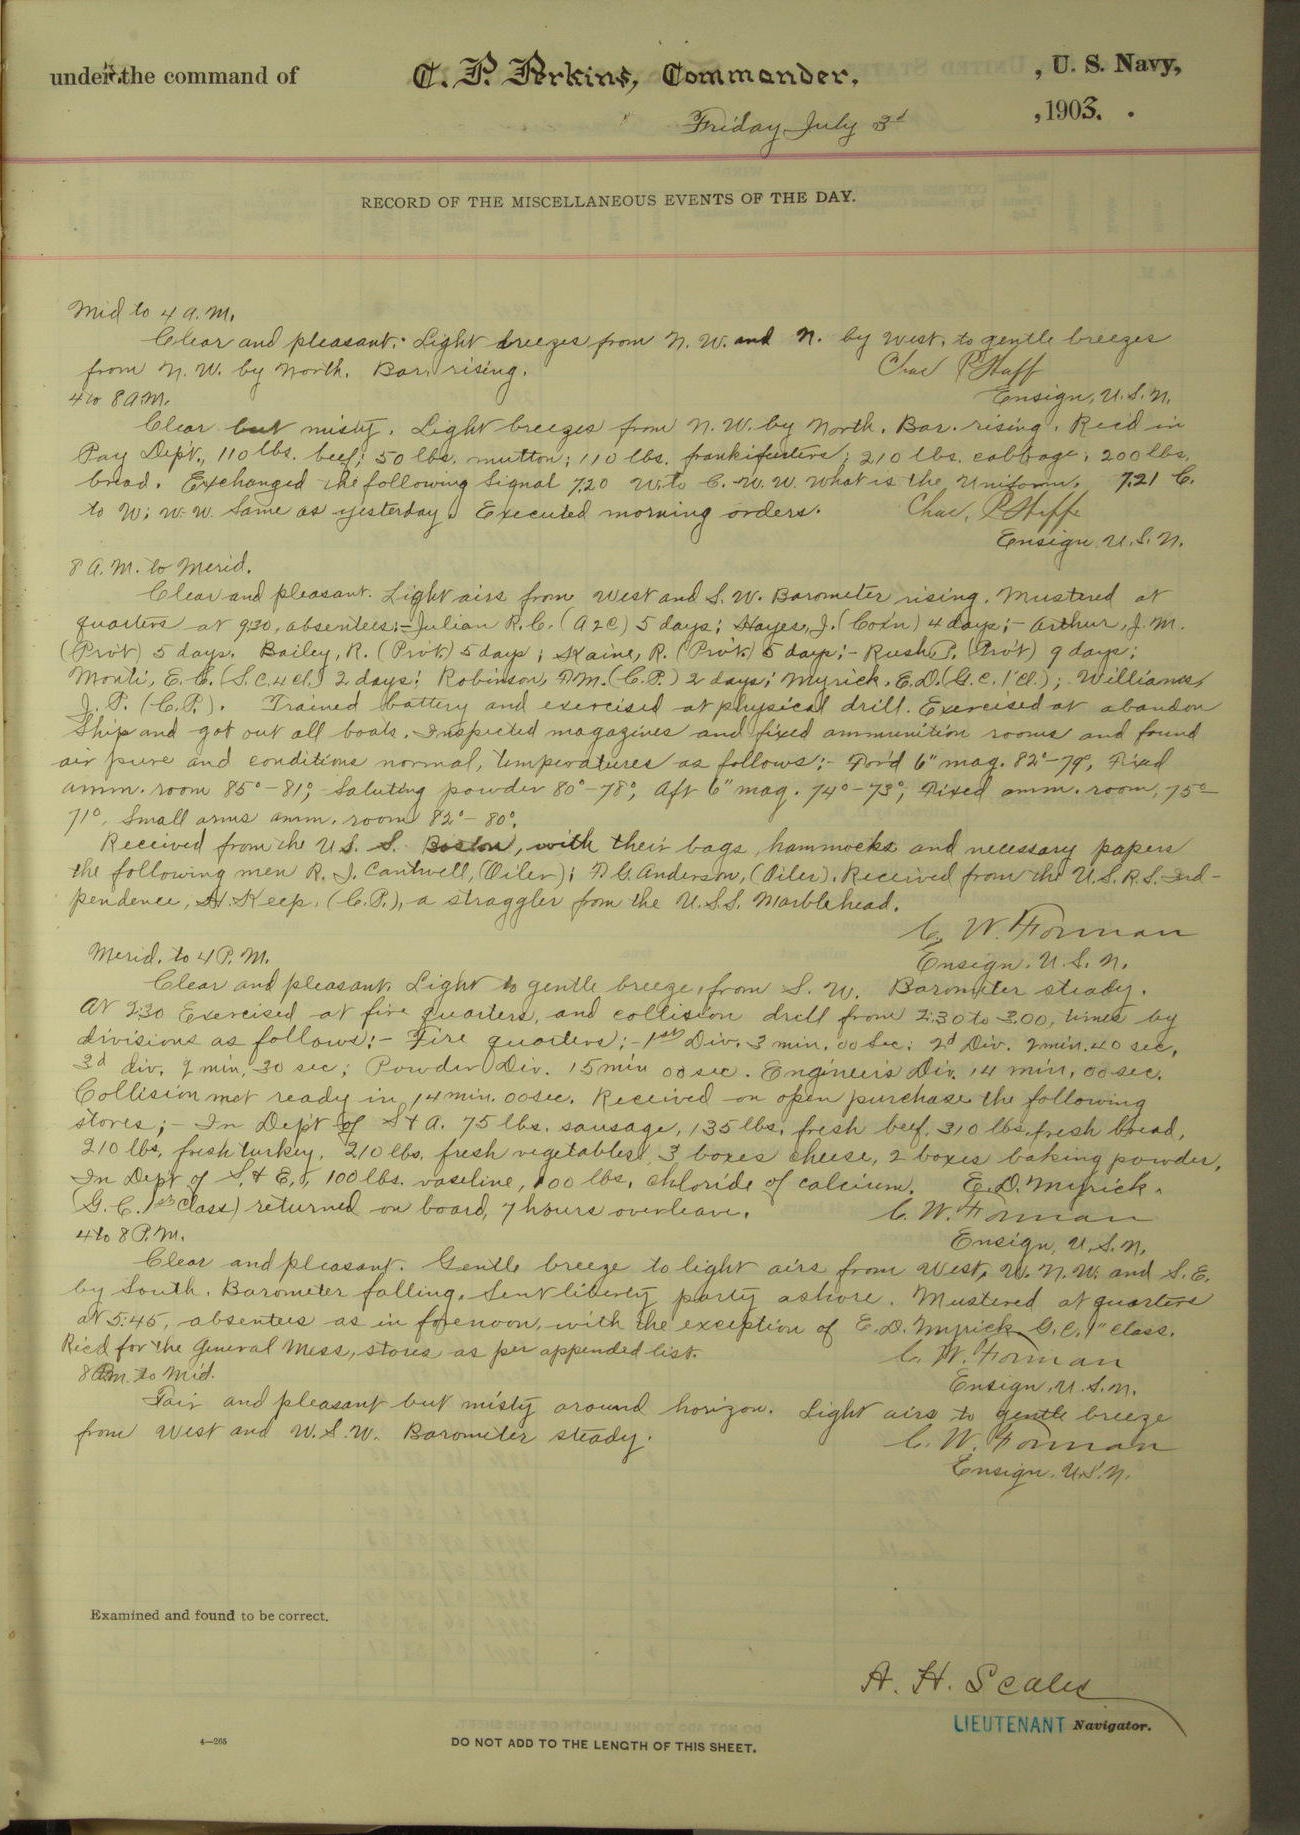 under the command of C. P. Perkins, Commander, , U. S. Navy,
Friday July 3d , 1903.
RECORD OF THE MISCELLANEOUS EVENTS OF THE DAY.
Mid to 4 A.M.
Clear and pleasant. Light breezes from N. W. and N. by West, to gentle breezes
from N. W. by North. Bar. rising.
Ensign, U.S.N.
4 to 8 A.M.
Clear but misty. Light breezes from N. W. by North. Bar. rising. Rec'd in
Pay Dep't., 110 lbs. beef; 50 lbs. mutton; 110 lbs. frankfurters; 210 lbs. cabbage; 200 lbs.
bread. Exchanged the following Signal 7.20 W. to C. W. W. What is the Uniform. 7.21 C.
to W: W-W. Same as yesterday. Executed morning orders.
Ensign U.S.N.
8 A.M. to Merid.
Clear and pleasant. Light airs from West and S. W. Barometer rising. Mustered at
quarters at 9:30, absentees:- Julian R. C. (A 2 C) 5 days; Hayes, J. (Coxn) 4 days;- Arthur, J. M.
(Prvt) 5 days. Bailey, R. (Prvt.) 5 days; Kaine, R. (Prvt.) 5 days;- Rush P. (Prvt) 9 days;
Monti, E. C. (S.C. 4 cl.) 2 days; Robinson, F.M. (C.P.) 2 days; Myrick, E.D. (G.C. 1" Cl.); Williams,
J. P. (C.P.). Trained battery and exercised at physical drill. Exercised at abandon
Ship and got out all boats. Inspected magazines and fixed ammunition rooms and found
air pure and conditions normal, temperatures as follows:- For'd 6" mag. 82°-79°, Fixed
amm. room 85°-81°, Saluting powder 80°-78°, Aft 6" mag. 74°-73°, Fixed amm. room, 75°-
71°. Small arms amm. room 82°-80°.
Received from the U.S. S. Boston, with their bags, hammocks and necessary papers
the following men R. J. Cantwell, (Oiler); F. G. Anderson, (Oiler). Received from the U.S.R.S. Ind-
pendence, H. Keep, (C.P.), a straggler from the U.S.S. Marblehead.
C. W. Forman
Ensign. U.S.N.
Merid. to 4 P.M.
Clear and pleasant. Light to gentle breeze, from S. W. Barometer steady.
At 2:30 Exercised at fire quarters, and collision drill from 2:30 to 3.00, times by
divisions as follows:- Fire quarters:- 1st Div. 3 min. 00 Sec: 2d Div. 2 min. 40 sec,
3d div. 9 min, 30 sec; Powder Div. 15 min 00 sec. Engineer's Div. 14 min, 00 sec.
Collision mat ready in 14 min. 00 sec. Received on open purchase the following
stores;- In Dep't of S & A. 75 lbs. sausage, 135 lbs. fresh beef, 310 lbs. fresh bread,
210 lbs. fresh turkey, 210 lbs. fresh vegetables, 3 boxes cheese, 2 boxes baking powder,
In Dept of S. & E., 100 lbs. vaseline, 100 lbs. chloride of calcium. E. D. Myrick.
(G. C. 1st Class) returned on board, 7 hours overleave.
C. W. Forman
Ensign, U.S.N.
4 to 8 P.M.
Clear and pleasant. Gentle breeze to light airs from West, W. N. W. and S. E.
by South. Barometer falling. Sent liberty party ashore. Mustered at quarters
at 5:45, absentees as in forenoon, with the exception of E. D. Myrick G. C. 1" class.
Rec'd for the General Mess, stores as per appended list.
C. W. Forman
Ensign, U.S.N.
8 P.M. to Mid.
Fair and pleasant but misty around horizon. Light airs to gentle breeze
from West and W. S. W. Barometer steady.
C. W. Forman
Ensign. U.S.N.
Examined and found to be correct.
A. H. Scales
LIEUTENANT Navigator.
4—265
DO NOT ADD TO THE LENGTH OF THIS SHEET.